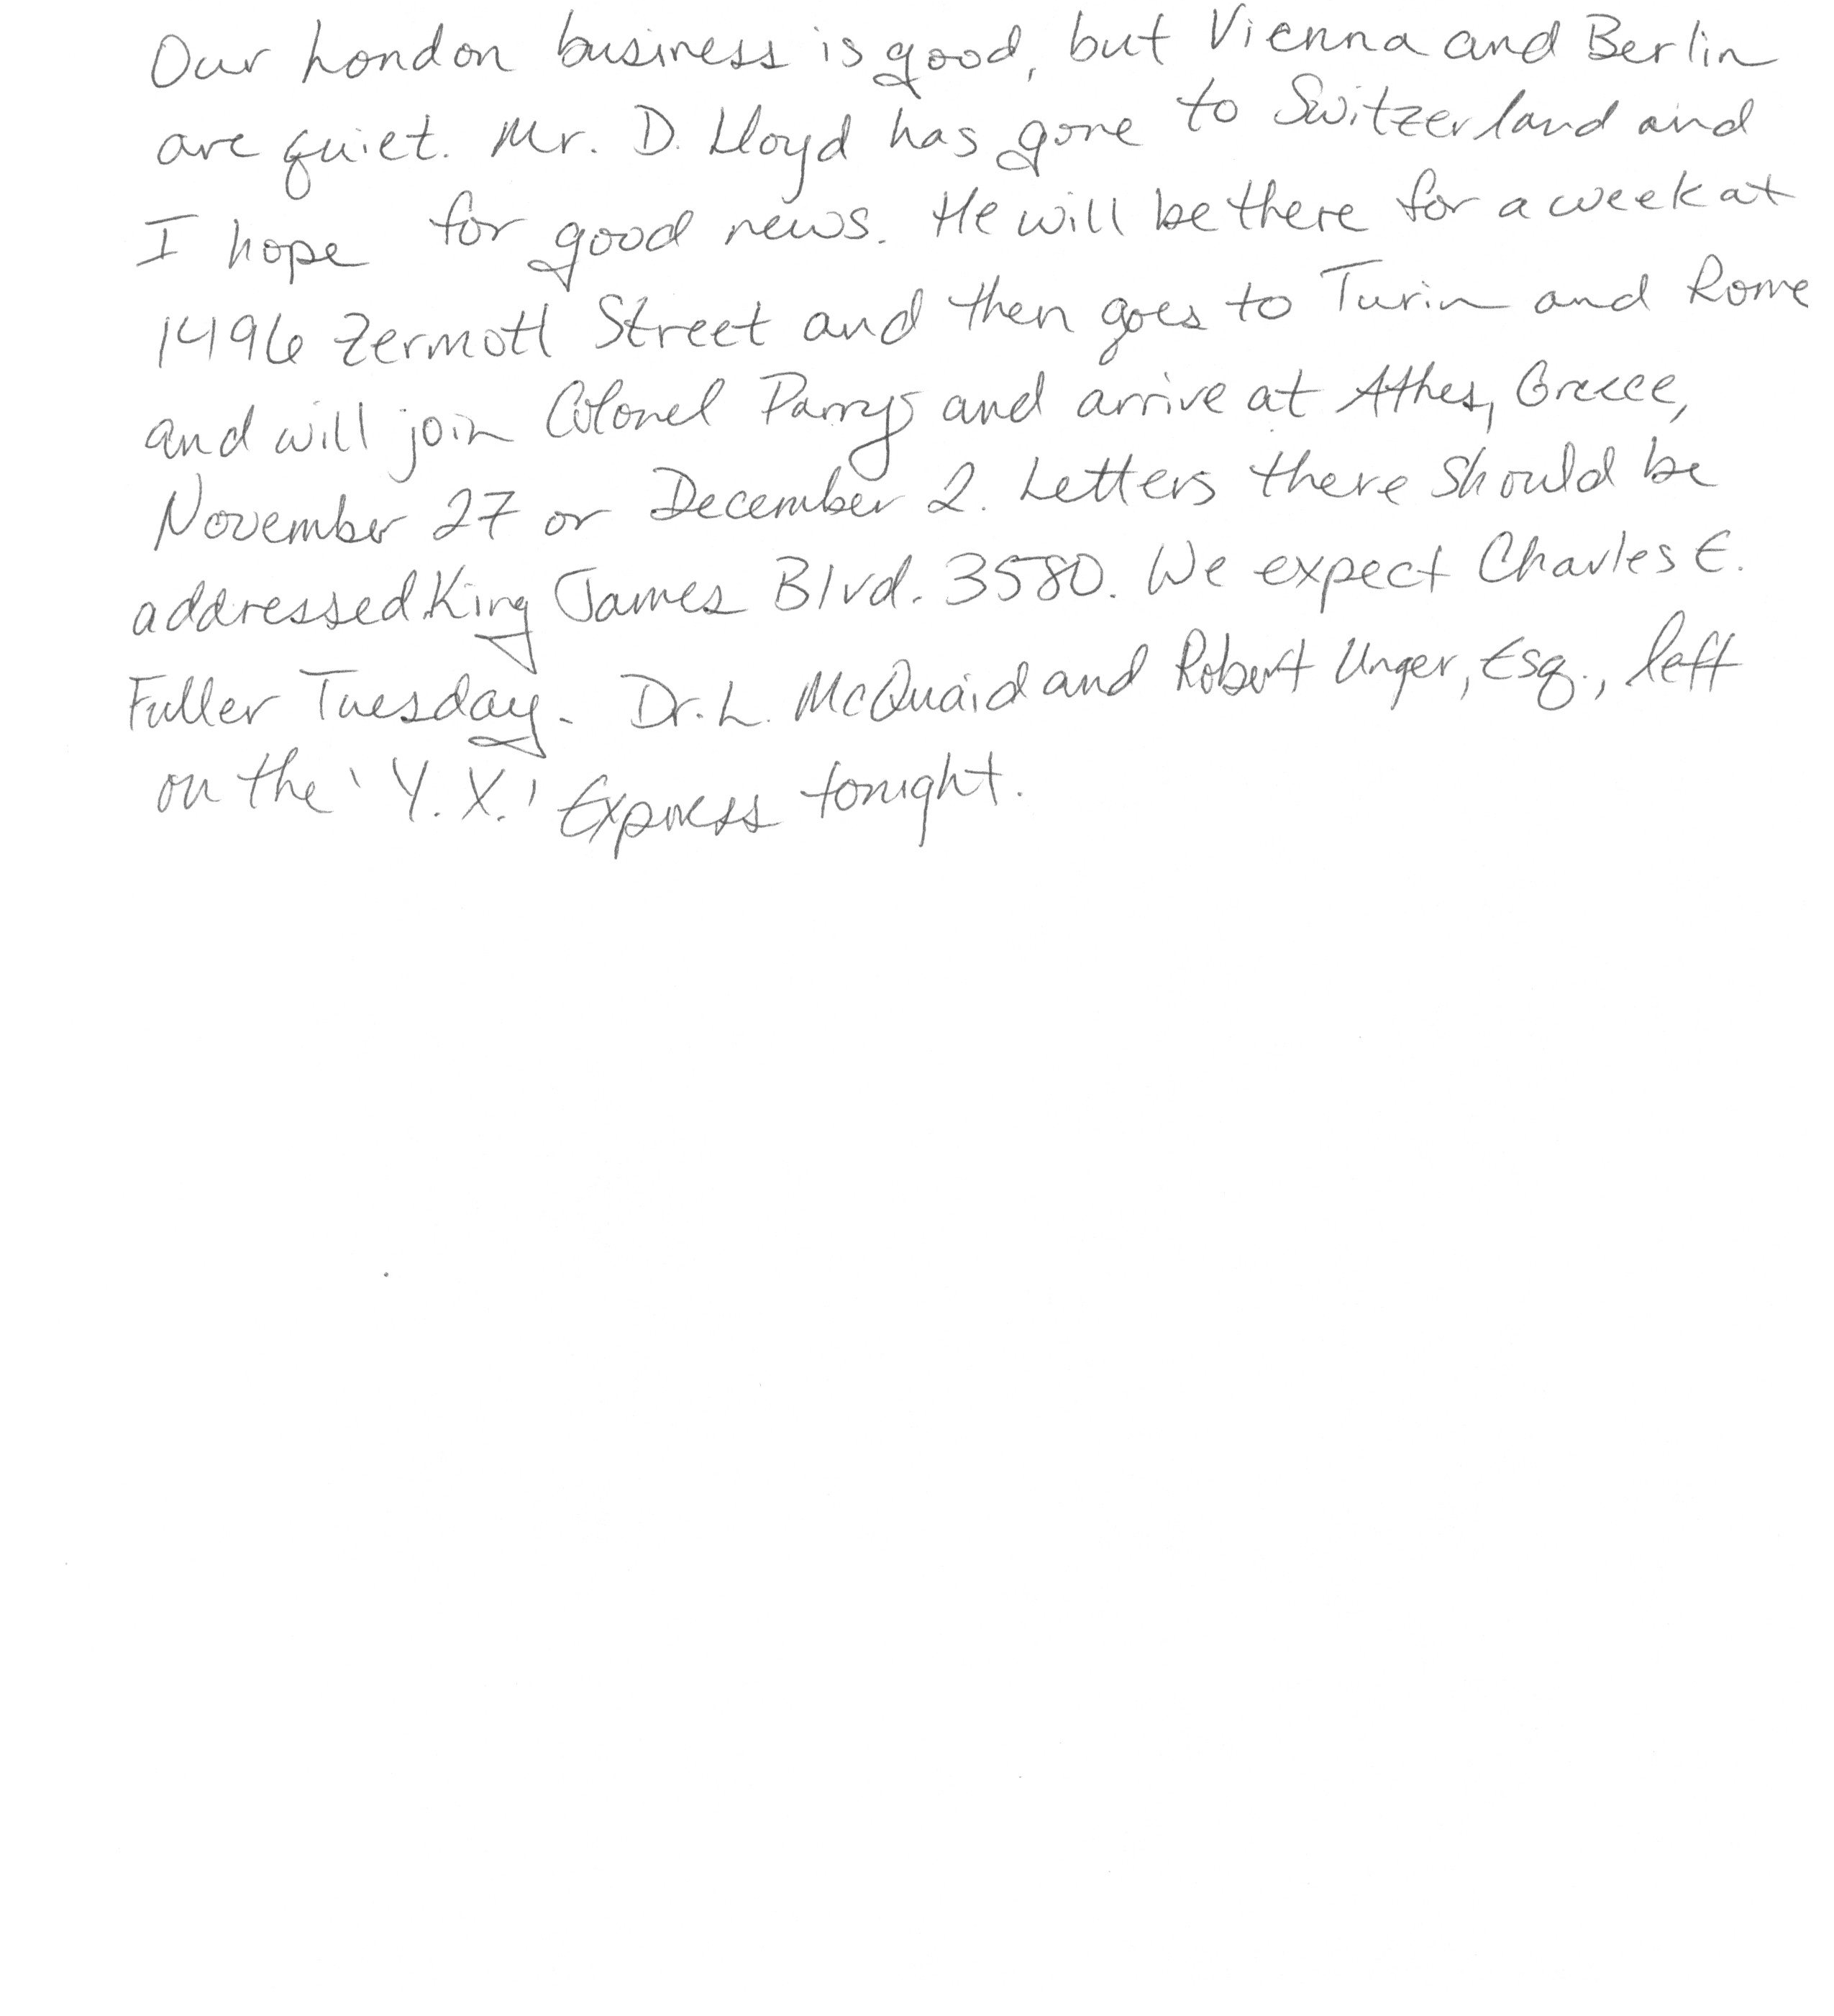 Our London business is good, but Vienna and Berlin
are quiet. Mr. D. Lloyd has gone to Switzerland and
I hope for good news. He will be there for a week at
1496 Zermott Street and then goes to Turin and Rome
and will join Colonel Parry and arrive at Athes, Greece,
November 27 or December 2. Letters there should be
addressed King James Blvd. 3580. We expect Charles E.
Fuller Tuesday. Dr. L. McQuaid and Robert Unger, Esq., left
on the 'Y.X.' Express tonight.